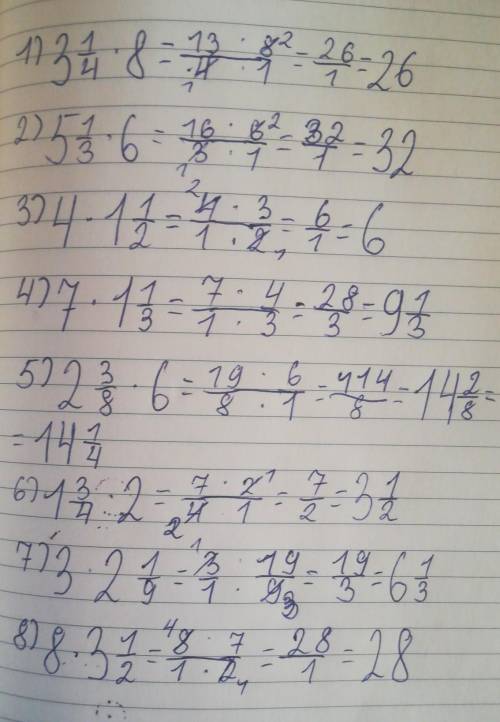 1) 3 1/4 · 8 = 13 · 8² / ₁4 · 1 = 26/1 = 26
2) 5 1/3 · 6 = 16 · 6² / ₁3 · 1 = 32/1 = 32
3) 4 · 1 1/2 = ²4 · 3 / 1 · 2₁ = 6/1 = 6
4) 7 · 1 1/3 = 7 · 4 / 1 · 3 = 28/3 = 9 1/3
5) 2 3/8 · 6 = 19 · 6 / 8 · 1 = 114/8 = 14 2/8 =
= 14 1/4
6) 1 3/4 · 2 = 7 · 2¹ / ₂4 · 1 = 7/2 = 3 1/2
7) 3 · 2 1/9 = ¹3/1 · 19/9₃ = 19/3 = 6 1/3
8) 8 · 3 1/2 = ⁴8 · 7 / 1 · 2₁ = 28/1 = 28